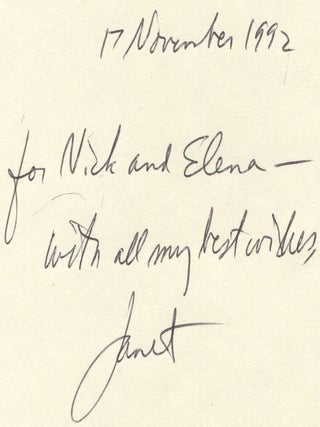 17 November 1992
for Nick and Elena —
with all my best wishes,
Janet